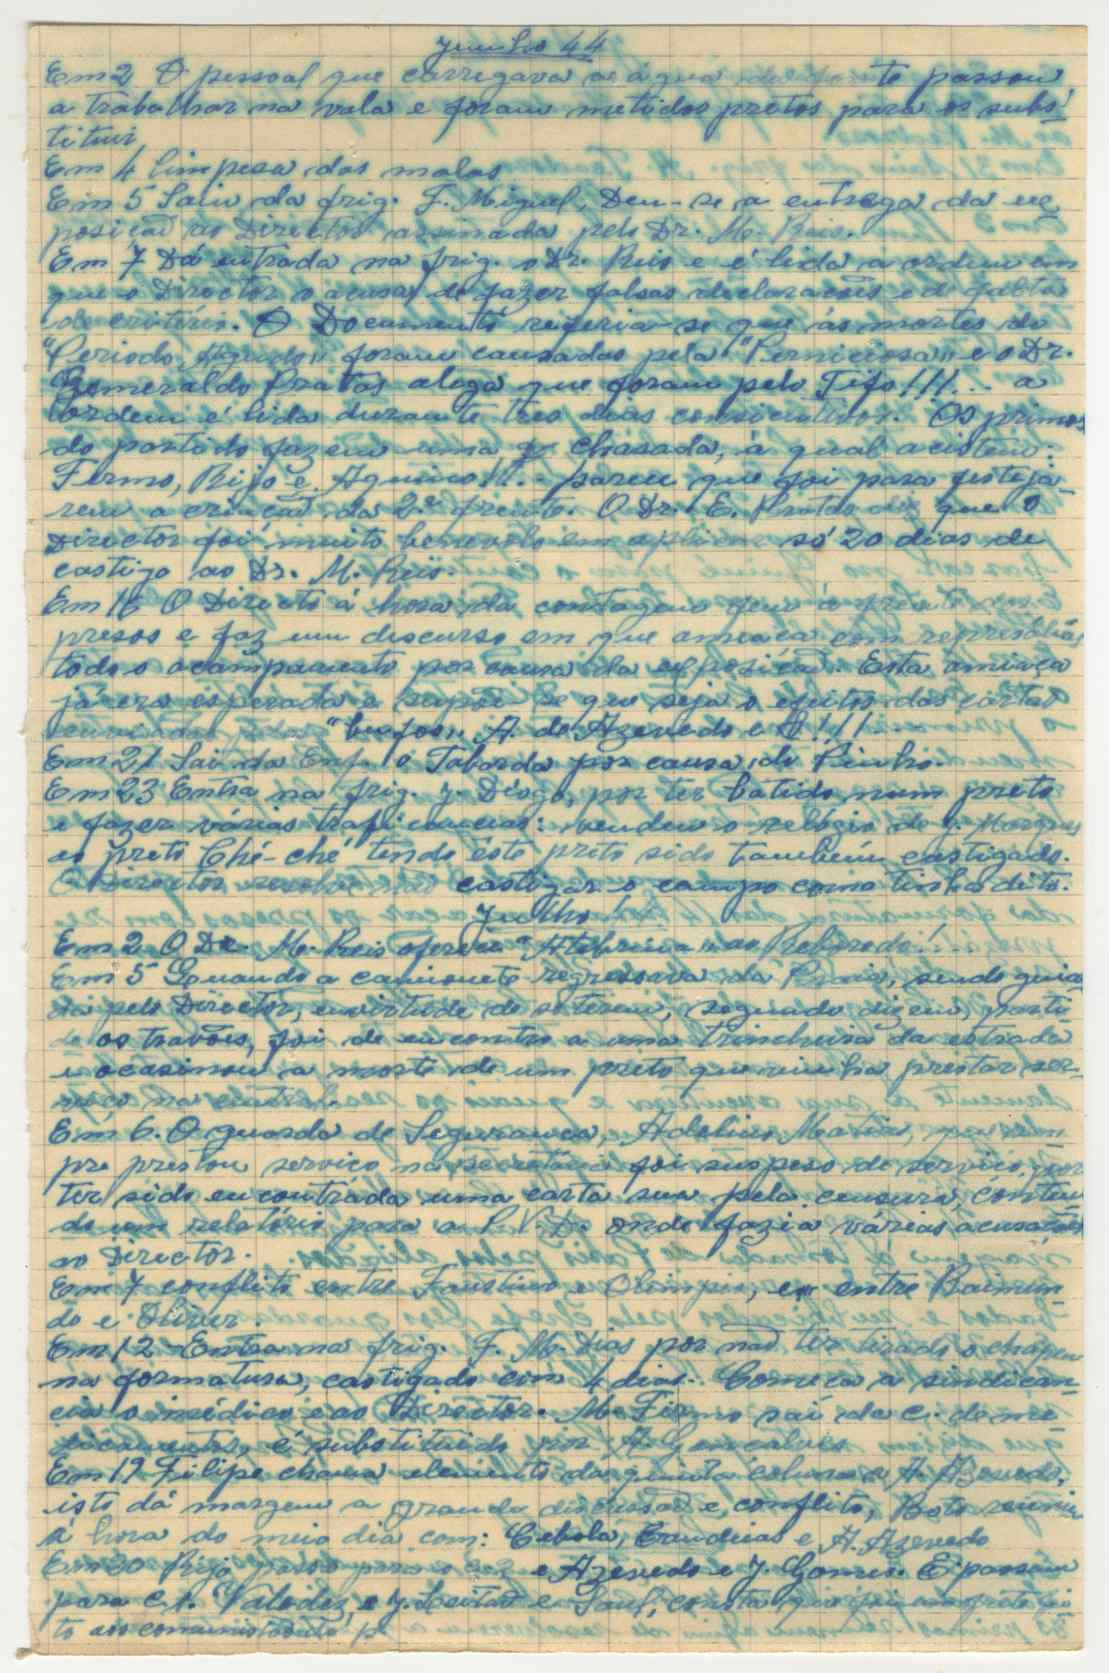 Junho 44
Em 2 O pessoal que carregava a água da fonte passou
a trabalhar na vala e foram metidos pretos para os subs-
tituir
Em 4 limpesa das malas
Em 5 Saiu da frig. F. Miguel, Deu-se a entrega da ex
posição ao Director assinada pelo Dr. M. Reis.
Em 7 Dá entrada na frig. o Dr. Reis e é lida a ordem em
que o Director o acusa de fazer falsas declarações e de falta
de critério. O Documento referia-se que ás mortes do
"Periodo Agudo" foram causadas pela "Perniciosa" e o Dr.
Esmeraldo Pratas alega que foram pelo Tifo!!!... a
ordem é lida durante tres dias consecutivos. Os primos
do partido fazem uma chásada, á qual acistem:
Firmo, Rijo e Aquino!!... parece que foi para festeja-
rem a criação da 2ª frente. O Dr. E. Pratas diz que o
Director foi muito benevolo em aplicar só 20 dias de
castigo ao Dr. M. Reis.
Em 16 O Directo á hora da contagem vem á frente dos
presos e faz um discurso em que ameaça com represálias
todo o acampamento por causa da exposição. Esta ameaça
já era esperada e supoe-se que seja o efeitos das cartas
"bufos" A. de Azevedo e !!!
Em 21 Sai da Enf. o Taborda por causa do Pinho.
Em 23 Entra na frig. J. Diogo, por ter batido num preto
e fazer várias traficancias: vendeu o relógio do J. Marques
ao preto Ché-ché tendo este preto sido também castigado.
O Director resolve não castigar o campo como tinha dito.
Julho
Em 2 O Dr. M. Reis oferece "Atebrina" ao Reboredo!
Em 5 Quando a camionete regressava da Praia, sendo guia-
da pelo Director, em virtude de se terem, segundo dizem, parti
do os travões, foi de encontro a uma trincheira da estrada
e ocasinou a morte de um preto que vinha prestar ser-
viço na central.
Em 6. O guarda de Segurança, Adelino Matia, que sem
pre prestou serviço na secretária foi suspeso do serviço, por
ter sido encontrada uma carta sua pela censura, conten
do um relatório para a P.V.D. onde fazia várias acusações
ao Director.
Em 7 conflito entre Faustino e Olimpio, e entre Raimun
do e Oliver.
Em 12 Entra na frig. F. M. Dias por não ter tirado o chapeu
na formatura, castigado com 4 dias. Começa a sindicân-
cia o médico e ao Director. M. Firmo sai da c. de me
dicamentos, é substituido por A. Gonçalves
Em 19 Filipe chama elemento da quinta coluna a A. Azevedo,
isto dá margem a grande discussão e conflito, Boto reuniu
á hora do meio dia com: Cebola, Candeias e A. Azevedo
Em 20 Rijo passa para a e Azevedo e J. Gomes. E passam
para c. 1. Valadez e J. Leitão e Saul, consta que foi
to aos comunistas